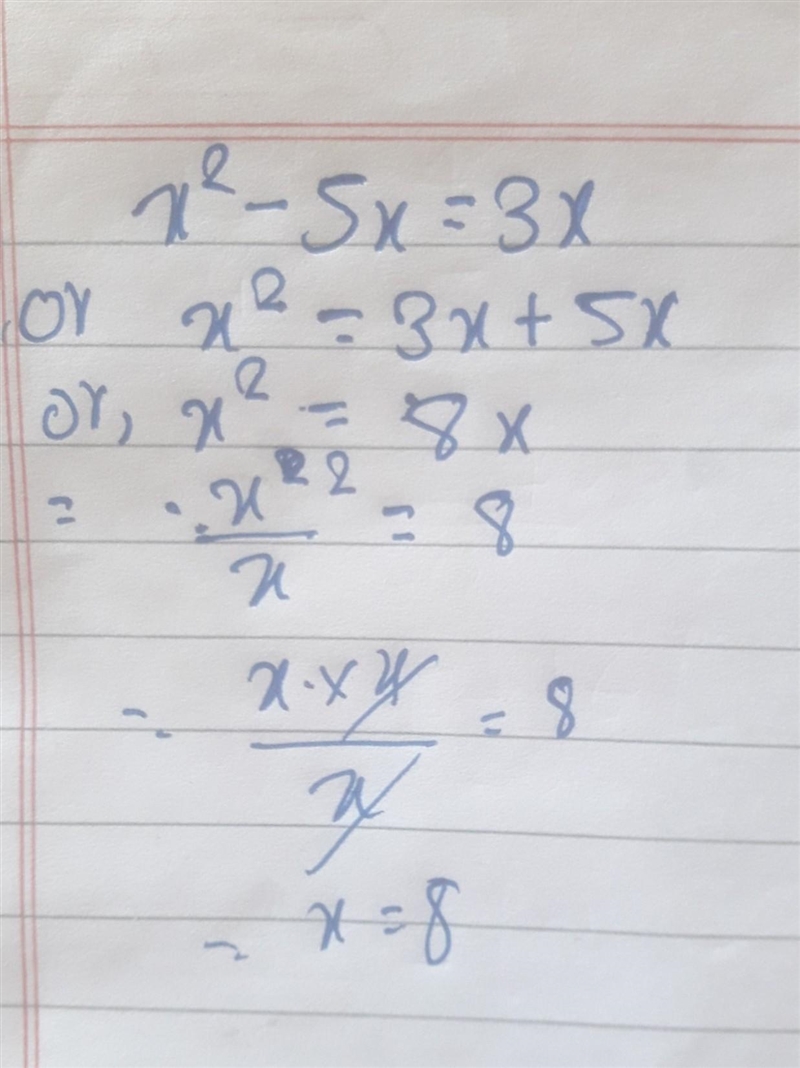 x² - 5x = 3x
or x² = 3x + 5x
or, x² = 8x
= x²/x = 8
= x · x x/x = 8
= x = 8